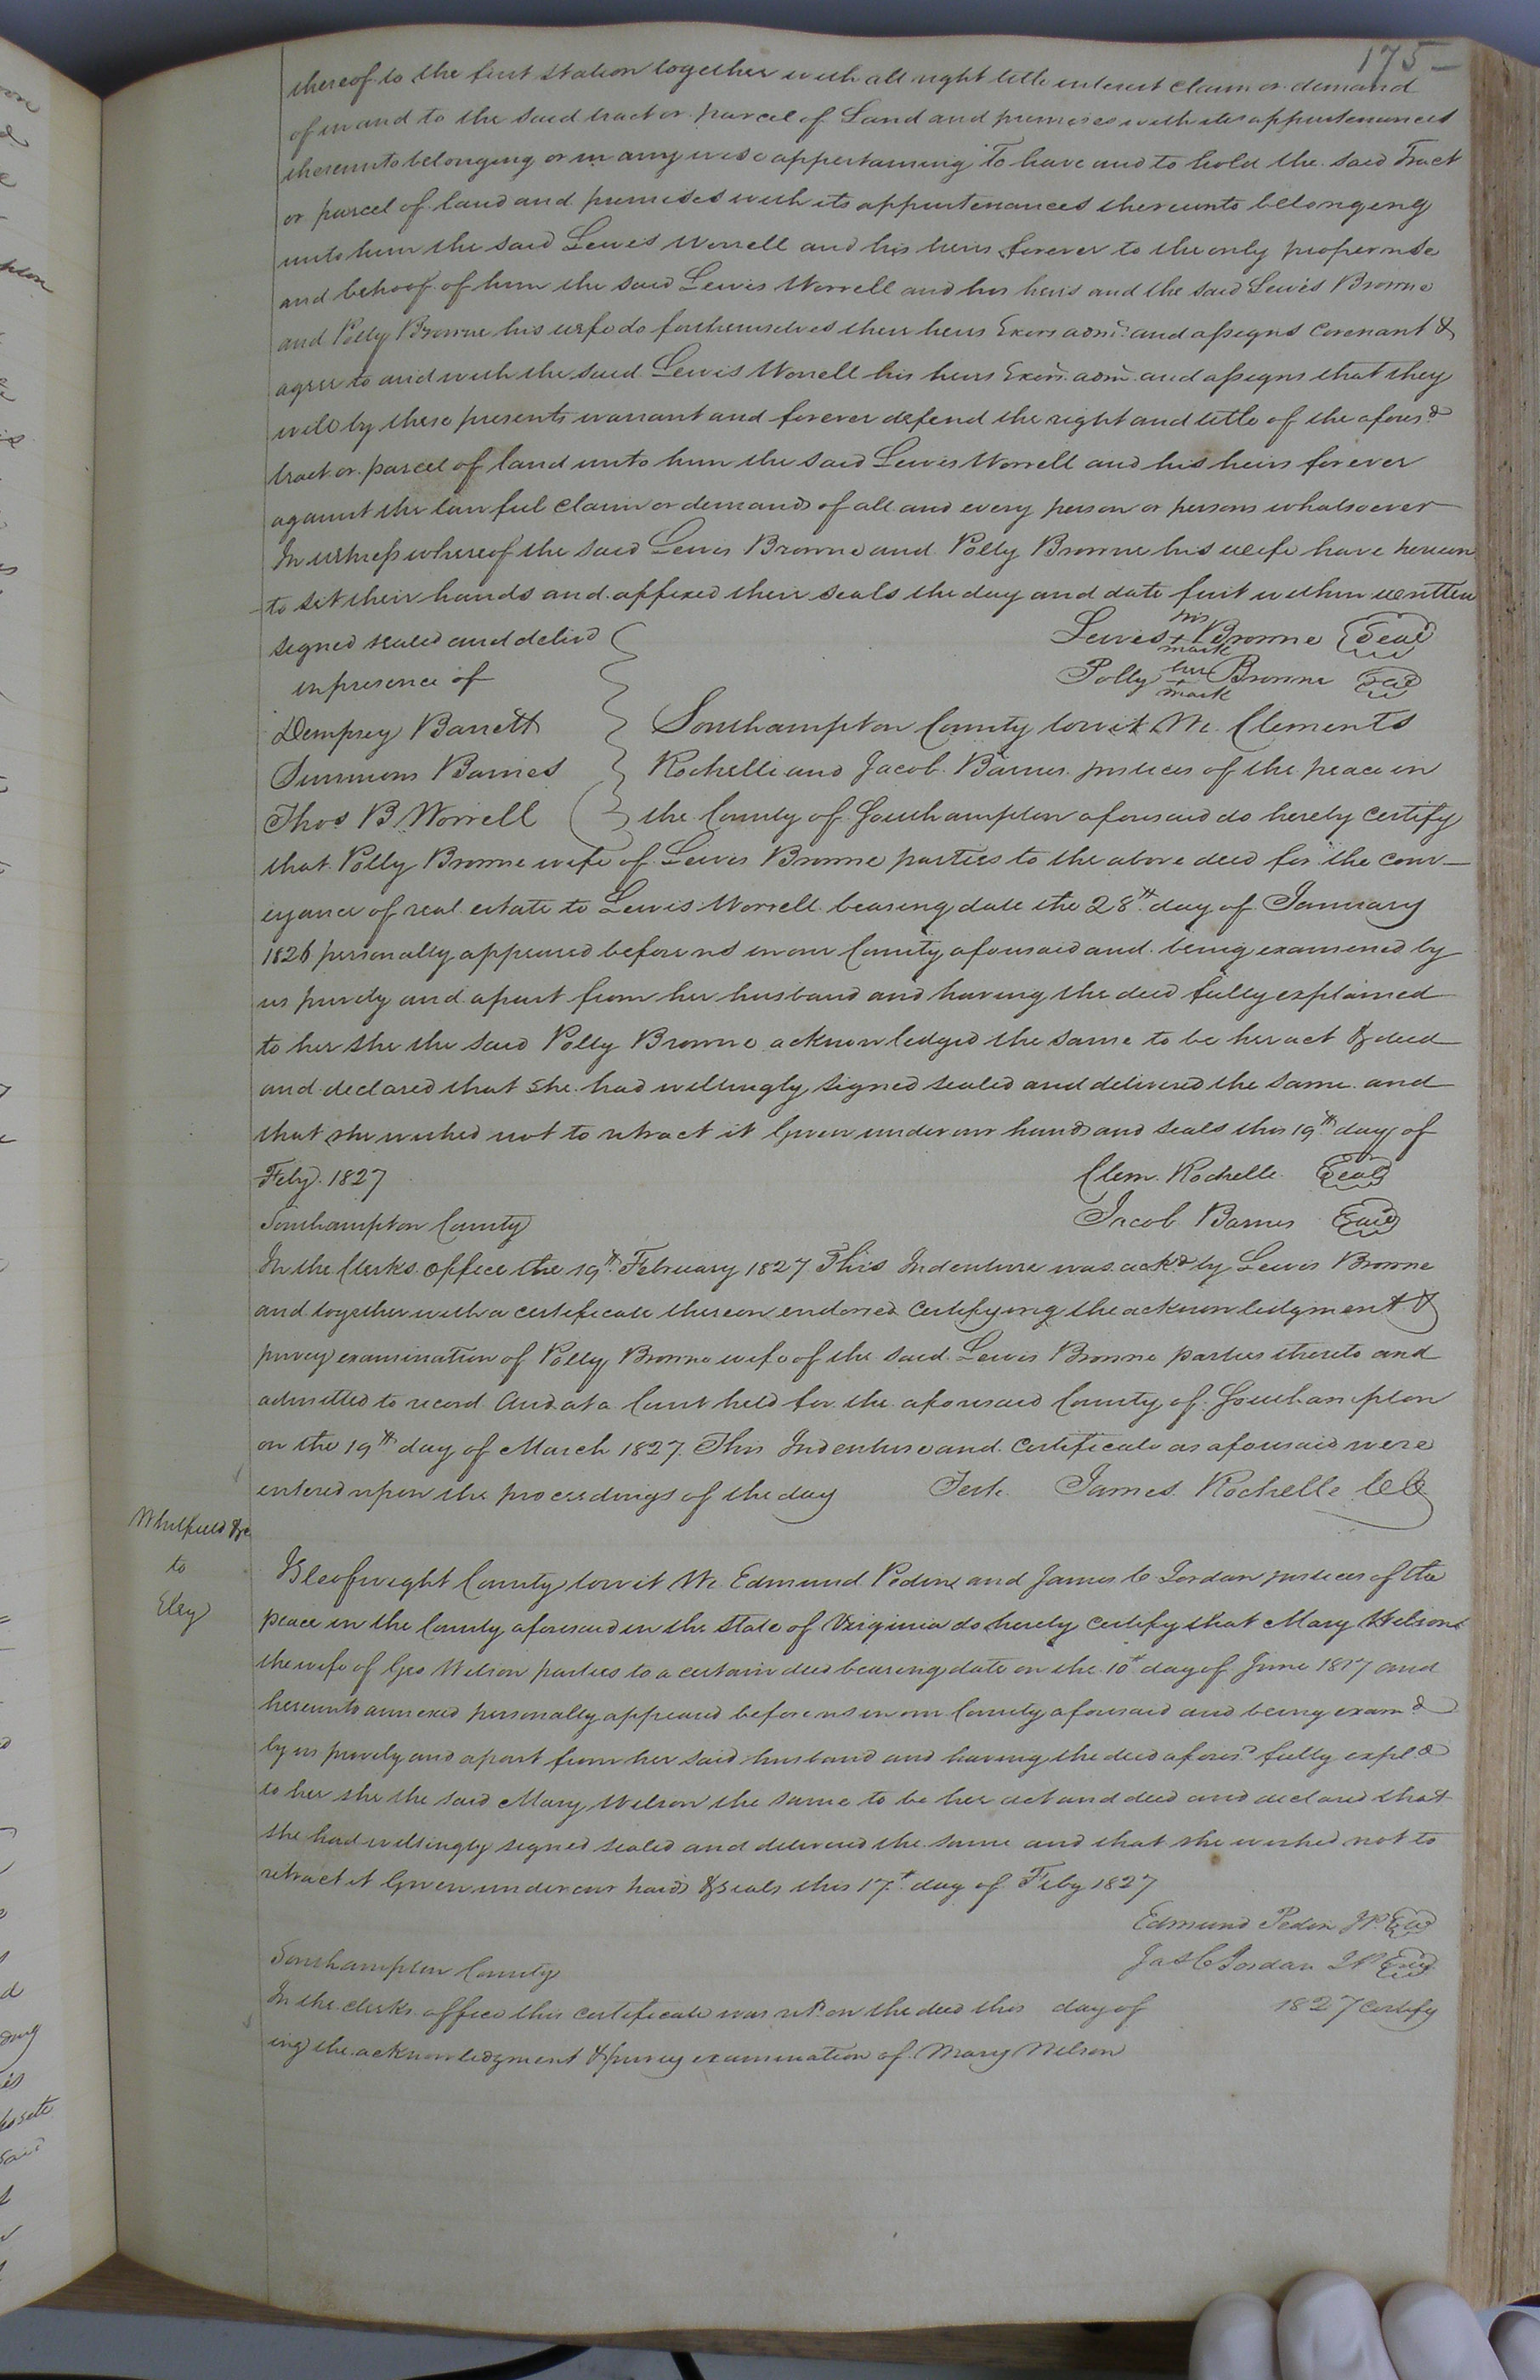 175
thereof to the first station together with all right title interest claim or demand
of in and to the said tract or parcel of Land and premises with its appurtenances
thereunto belonging or in any wise appertaining To have and to hold the said Tract
or parcel of land and premises with its appurtenances thereunto belonging
unto him the said Lewis Worrell and his heirs forever to the only proper use
and behoof of him the said Lewis Worrell and his heirs and the said Lewis Browne
and Polly Browne his wife do for themselves their heirs Exors admrs and assigns Covenant &
agree to and with the said Lewis Worrell his heirs Exors admrs and assigns that they
will by these presents warrant and forever defend the right and title of the afores.d
tract or parcel of land unto him the said Lewis Worrell and his heirs forever
against the lawful claim or demands of all and every person or persons whatsoever
In witness whereof the said Lewis Browne and Polly Browne his wife have hereun
to set their hands and affixed their seals the day and date first within written
signed sealed and delivd Lewis his + mark Browne Seal
in presence of Polly her + mark Browne Seal
Dempsey Barrett Southampton County towit We Clements
Simmons Barnes Rochelle and Jacob Barnes justices of the peace in
Thos B Worrell the County of Southampton aforesaid do hereby certify
that Polly Browne wife of Lewis Browne parties to the above deed for the conv-
eyance of real estate to Lewis Worrell bearing date the 28th day of January
1826 personally appeared before us in our County aforesaid and being examined by
us privily and apart from her husband and having the deed fully explained
to her she the said Polly Browne acknowledged the same to be her act & deed
and declared that she had willingly signed sealed and delivered the same and
that she wished not to retract it Given under our hands and seals this 19th day of
Feby. 1827 Clem. Rochelle Seal
Southampton County Jacob Barnes Seal
In the Clerks office the 19th February 1827 This Indenture was ackd by Lewis Browne
and together with a certificate thereon endorsed Certifying the acknowledgment &
privy examination of Polly Browne wife of the said Lewis Browne parties thereto and
admitted to record And at a Court held for the aforesaid County of Southampton
on the 19th day of March 1827. This Indenture and Certificate as aforesaid were
entered upon the proceedings of the day Teste James Rochelle CC
Whitfield &c
to
Eley
Isle of wight County towit We Edmund Pedin and James C Jordan justices of the
peace in the County aforesaid in the State of Virginia do hereby certify that Mary Wilson
the wife of Geo Wilson parties to a certain deed bearing date on the 10th day of June 1817 and
hereunto annexed personally appeared before us in our County aforesaid and being exam.d
by us privily and apart from her said husband and having the deed afores.d fully expl.d
to her she the said Mary Wilson the same to be her act and deed and declared that
she had willingly signed sealed and delivered the same and that she wished not to
retract it Given under our hands & seals this 17th day of Feby 1827
Edmund Pedin JP Seal
Southampton County Jas C Jordan JP Seal
In the clerks office this certificate was retd on the deed this day of 1827 Certify
ing the acknowledgment & privy examination of Mary Wilson